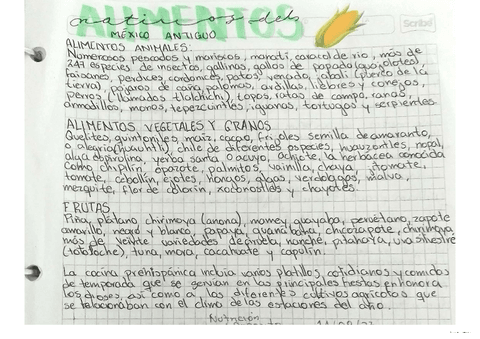 ALIMENTOS
nativos del
MÉXICO ANTIGUO
Scribe
ALIMENTOS ANIMALES:
Numerosos pescados y mariscos, manatí, caracol de río, más de
247 especies de insectos, gallinas, gallos de papada (guajolotes),
faisanes, perdices, codornices, patos, venado, jabalí (puerco de la
tierra), pájaros de caña, palomas, ardillas, liebres y conejos,
perros (llamados tlalchichi), topos, ratas de campo, ranas,
armadillos, monos, tepezcuintles, iguanas, tortugas y serpientes.
ALIMENTOS VEGETALES Y GRANOS
Quelites, quintoniles, maíz, cacao, frijoles semilla de amaranto,
o alegría (huautli), chile de diferentes especies, huauzontles, nopal,
alga espirolina, yerba santa o acuyo, achiote, la herbacea conocida
como chiplín, epazote, palmitos, vainilla, chaya, jitomate,
tomate, cebollín, ejotes, hongos, algas, verdolagas, malva,
mezquite, flor de colorín, xoconostles y chayotes.
FRUTAS
Piña, plátano chirimoya (anona), mamey, guayaba, peruétano, zapote
amarillo, negro y blanco, papaya, guanábana, chicozapote, chirimoya,
más de veinte variedades de ciruela, nanche, pitahaya, uva silvestre
(totoloche), tuna, mora, cacahuate y capulín.
La cocina prehispánica incluía varios platillos, cotidianos y comidas
de temporada que se servían en las principales fiestas en honor a
los dioses, así como a las diferentes cultivos agrícolas que
se relacionaban con el clima de las estaciones del año.
Nutrición